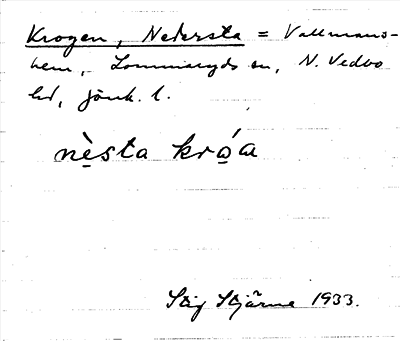 Krogen, Nedersta = Vallmans-
hem, Lommaryds sn, N. Vedbo
hd, Jönk. l.
nè̠sta krǫ́a
Stig Stjärne 1933.